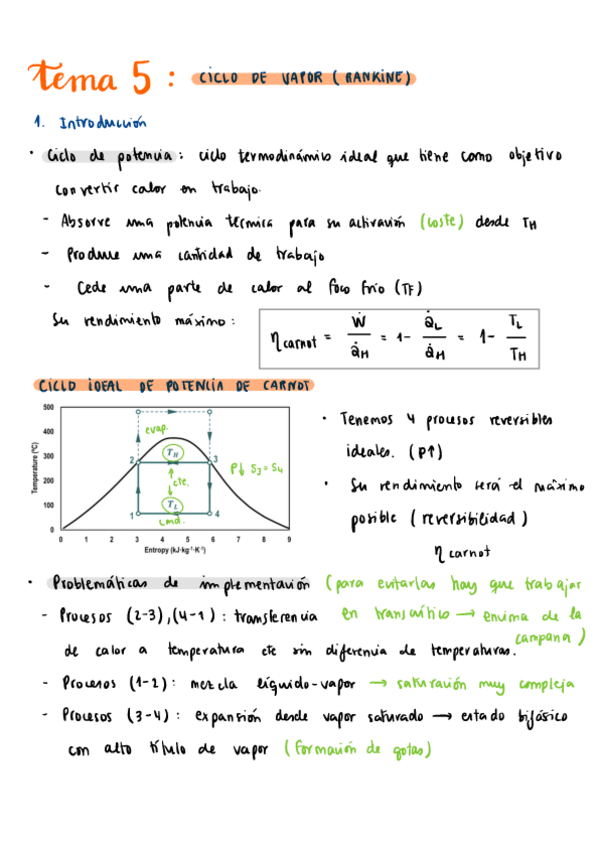 Tema 5 : CICLO DE VAPOR (RANKINE)
1. Introducción
· Ciclo de potencia : ciclo termodinámico ideal que tiene como objetivo
convertir calor en trabajo.
- Absorve una potencia térmica para su activación (coste) desde TH
- Produce una cantidad de trabajo
- Cede una parte de calor al foco frío (TF)
Su rendimiento máximo :
η carnot = Ẇ / Q̇H = 1 - Q̇L / Q̇H = 1 - TL / TH
CICLO IDEAL DE POTENCIA DE CARNOT
Temperature (ºC)
500
400
300
200
100
0
0 1 2 3 4 5 6 7 8 9
Entropy (kJ·kg⁻¹·K⁻¹)
evap.
2 TH 3
P↓ S3 = S4
cte.
TL
1 cond. 4
· Tenemos 4 procesos reversibles
ideales. (P↑)
· Su rendimiento será el máximo
posible ( reversibilidad )
η carnot
· Problemáticas de implementación (para evitarlas hay que trabajar
- Procesos (2-3),(4-1) : transferencia en transcrítico → encima de la
campana )
de calor a temperatura cte sin diferencia de temperaturas.
- Procesos (1-2) : mezcla líquido-vapor → saturación muy compleja
- Procesos (3-4) : expansión desde vapor saturado → estado bifásico
con alto título de vapor (formación de gotas)